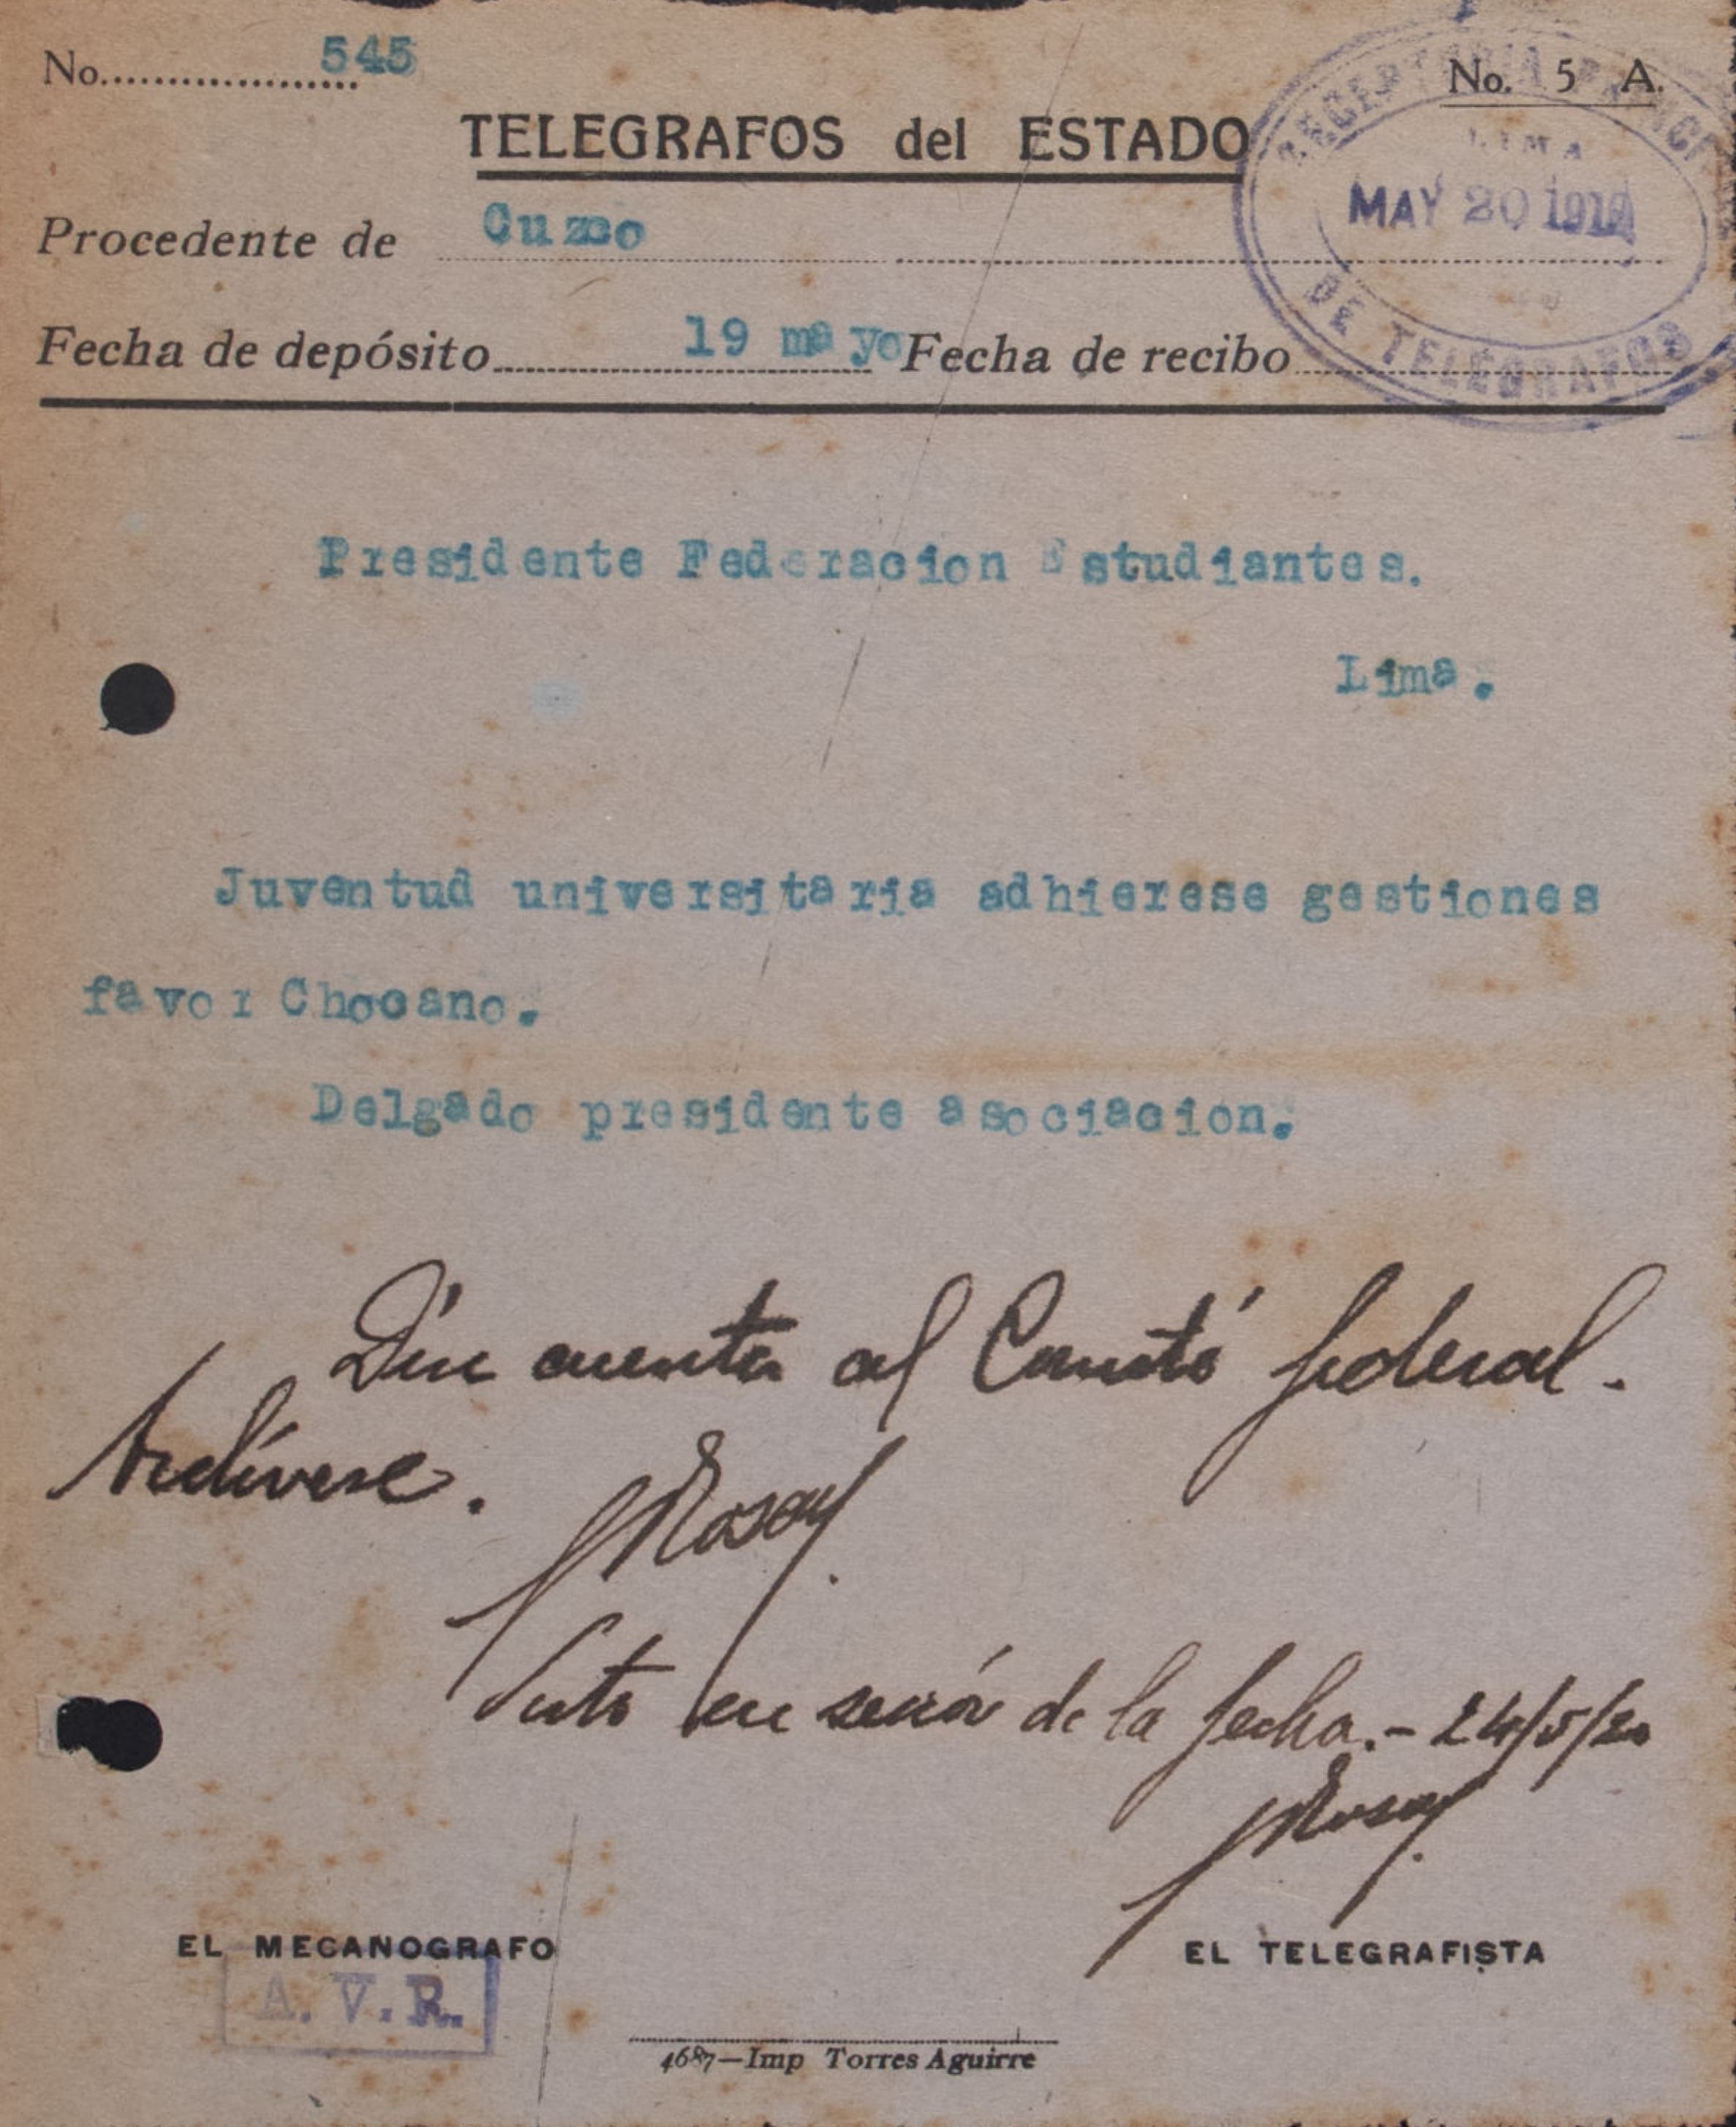 No. 545
No. 5 A.
TELEGRAFOS del ESTADO
LIMA
MAY 20
DE TELEGRAFOS
Procedente de Cuzco
Fecha de depósito 19 mayo Fecha de recibo
Presidente Federacion Estudiantes.
Lima.
Juventud universitaria adhierese gestiones
favor Chocano.
Delgado presidente asociacion.
Dése cuenta al Comité federal.
Archívese.
Visto en sesión de la fecha.- 24/5/20
EL MECANOGRAFO
EL TELEGRAFISTA
A. V. R.
4687—Imp Torres Aguirre